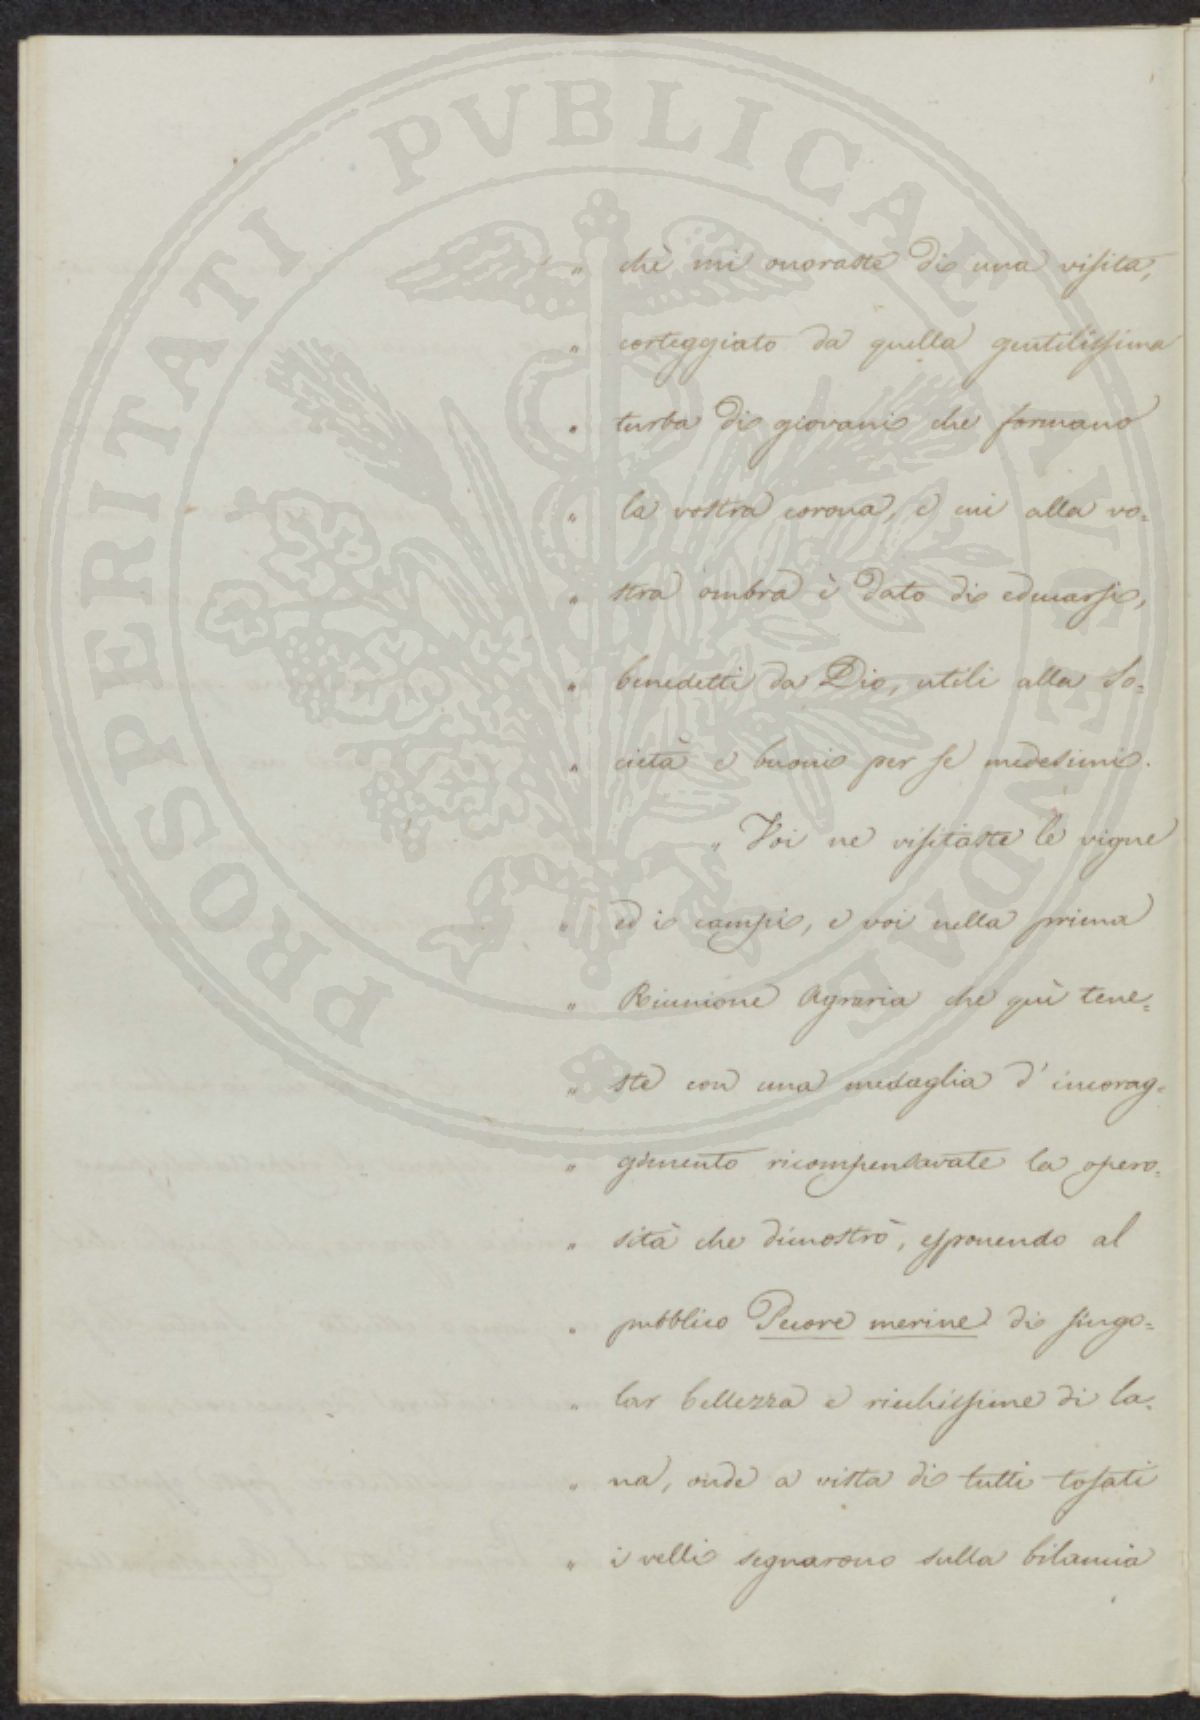 PROSPERITATI PVBLICAE AVGENDAE
„ chè mi onoraste di una visita,
„ corteggiato da quella gentilissima
„ turba di giovani che formano
„ la vostra corona, e cui alla vo=
„ stra ombra è dato di educarsi,
„ benedetti da Dio, utili alla So=
„ cietà e buoni per se medesimi.
„ Voi ne visitaste le vigne
„ ed i campi, e voi nella prima
„ Riunione Agraria che quì tene=
„ ste con una medaglia d'incorag=
„ gimento ricompensavate la opero=
„ sità che dimostrò, esponendo al
„ pubblico Pecore merine di singo=
„ lar bellezza e ricchissime di la=
„ na, onde a vista di tutti tosati
„ i velli segnarono sulla bilancia